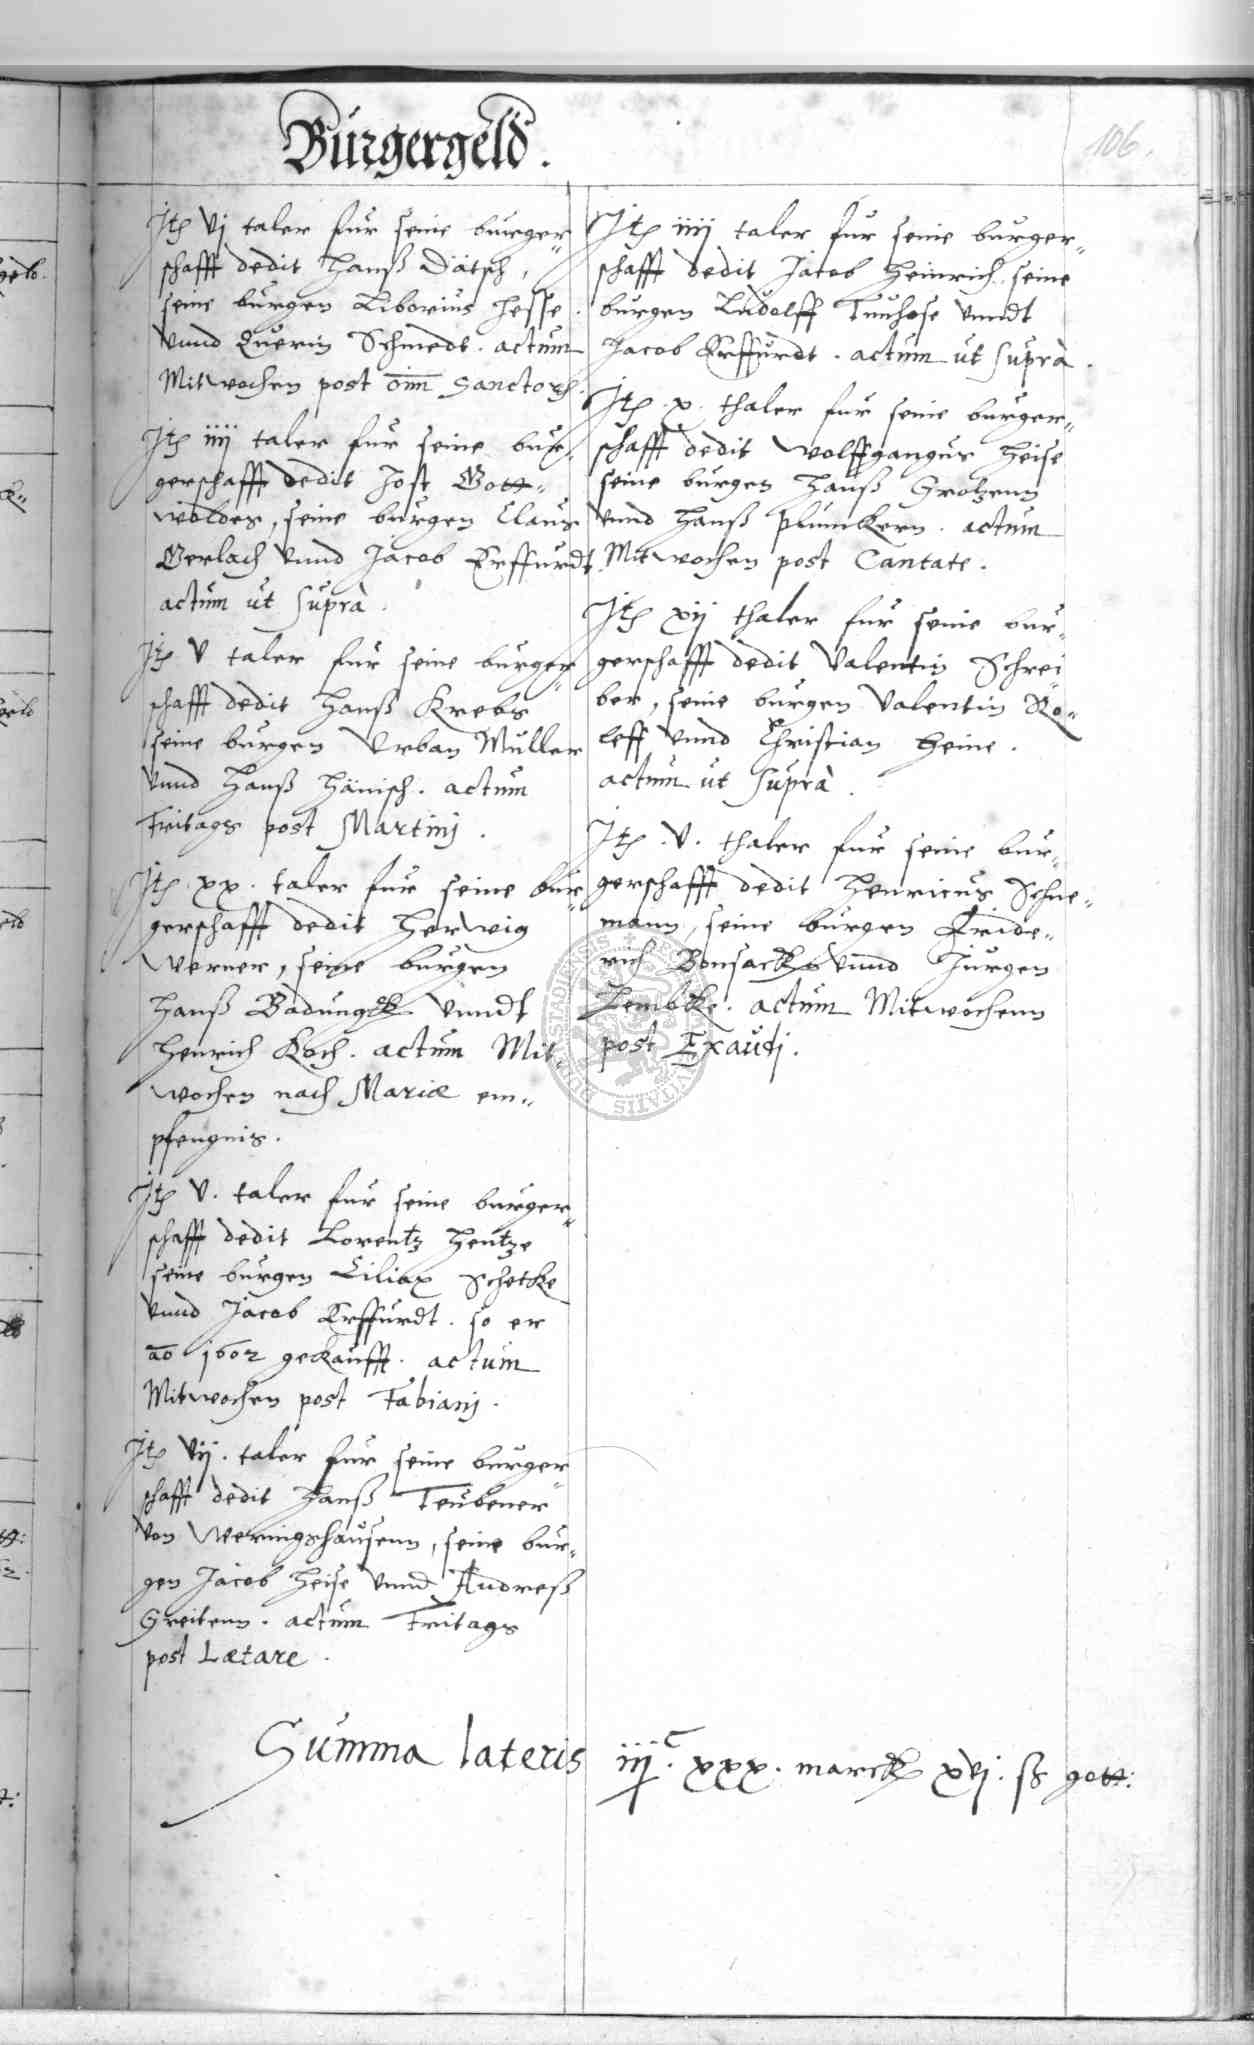 Burgergeld.
106.
Jtē vj taler fur seine burger„
schafft dedit Hanß Dätsch,
seine burgen Liborius Hesse
vnnd Querin Schmedt. actum
Mitwochen post oim̄ Sanctorū.
Jtē iiij taler fur seine bur„
gerschafft dedit Jost Gott„
woldes, seine burgen Claus
Gerlach vnnd Jacob Erffurdt
actum ut suprà.
Jtē v taler fur seine burger„
schafft dedit Hanß Krebs
seine burgen Urban Muller
vnnd Hanß Hänisch. actum
Fritags post Martinj.
Jtē xx. taler fur seine bur„
gerschafft dedit Herwig
Werner, seine burgen
Hanß Badungk vnndt
Henrich Koch. actum Mit„
wochen nach Mariæ em„
pfengnis.
Jtē v. taler fur seine burger„
schafft dedit Lorentz Hentze
seine burgen Ciliax Schetke
vnnd Jacob Erffurdt. so er
ao 1602 gekaufft. actum
Mitwochen post Fabianj.
Jtē vij. taler fur seine burger„
schafft dedit Hanß Teubener
von Weringshausenn, seine bur„
gen Jacob Heise vnnd Andreß
Greitenn. actum Fritags
post Lætare.
Jtē iiij taler fur seine burger„
schafft dedit Jacob Heinrich seine
burgen Ludolff Tunhose vnndt
Jacob Erffurdt. actum ut suprà.
Jtē. x. thaler fur seine burger„
schafft dedit Wolffgangus Heise
seine burgen Hanß Grotzenn
vnnd Hanß Plumkern. actum
Mitwochen post Cantate.
Jtē xij thaler fur seine bur„
gerschafft dedit Valentin Schrei„
ber, seine burgen Valentin Ro„
leff vnnd Christian Heine.
actum ut suprà.
Jtē. v. thaler fur seine bur„
gerschafft dedit Henricus Schne„
mann, seine burgen Fride„
rich Bonsack vnnd Jurgen
Lembke. actum Mitwochenn
post Exaudj.
Summa lateris iijc. xxx. marck xvj. ß gott: